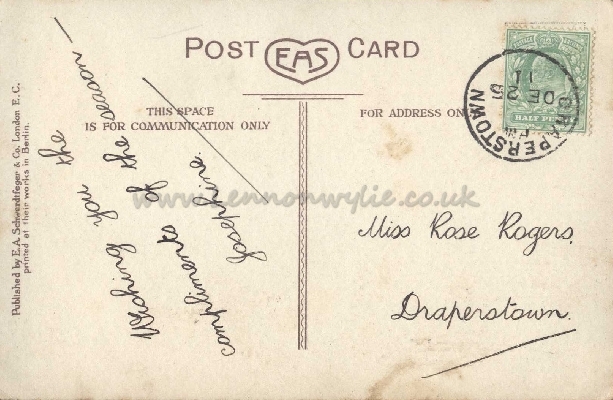 POST EAS CARD
THIS SPACE
IS FOR COMMUNICATION ONLY
FOR ADDRESS ON
HALF PE
DRAPERSTOWN
AM
DE 25
11
Wishing you the
compliments of the season—
Josephine.
Miss Rose Rogers.
Draperstown.
Published by E.A. Schwerdtfeger & Co. London E.C.
printed at their works in Berlin.
www.lennonwylie.co.uk